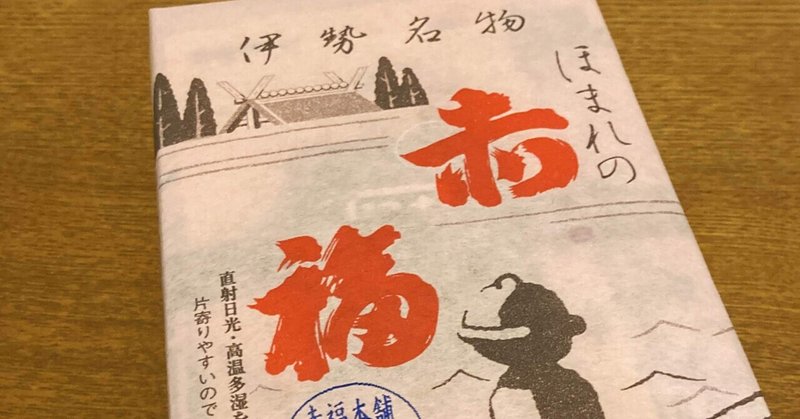 伊勢名物
ほまれの
赤福
直射日光・高温多湿を
片寄りやすいので
赤福本舗